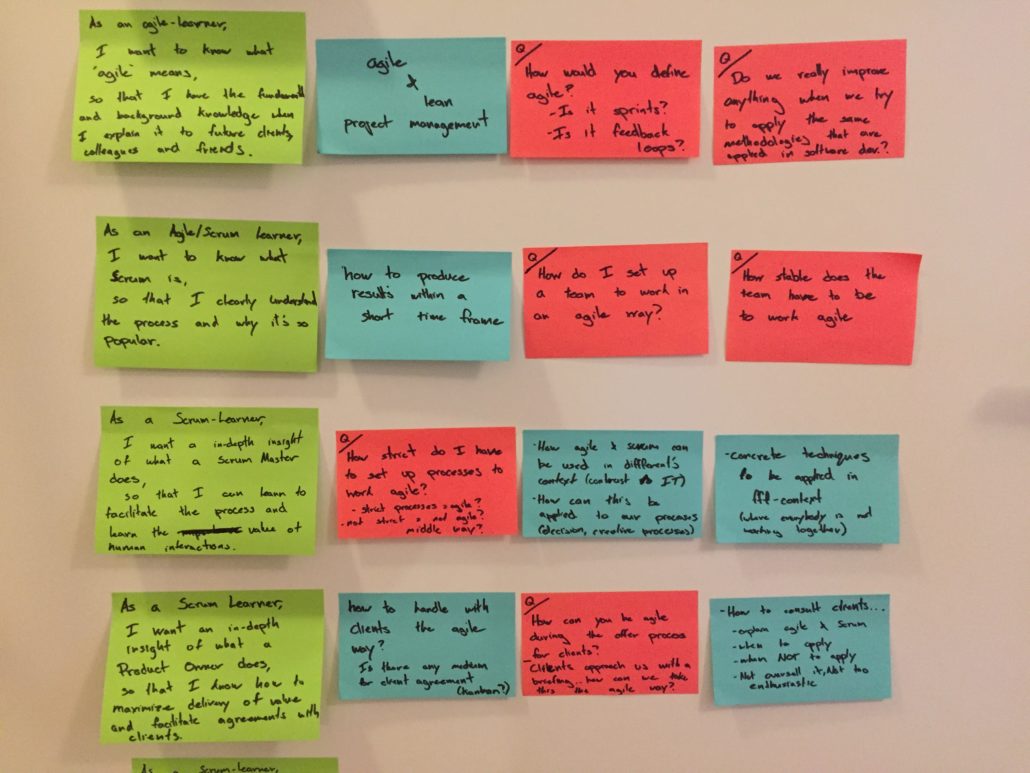 As an agile-learner,
I want to know what
'agile' means,
so that I have the fundamentl
and background knowledge when
I explain it to future clients,
colleagues and friends.
agile
&
lean
project management
Q
How would you define
agile?
- Is it sprints?
- Is it feedback
loops?
Q
Do we really improve
anything when we try
to apply the same
methodologies that are
applied in software dev.?
As an Agile/Scrum Learner,
I want to know what
Scrum is,
so that I clearly understand
the process and why it's so
popular.
how to produce
results within a
short time frame
Q
How do I set up
a team to work in
an agile way?
Q
How stable does the
team have to be
to work agile
As a Scrum-Learner,
I want a in-depth insight
of what a Scrum Master
does,
so that I can learn to
facilitate the process and
learn the value of
human interactions.
Q
How strict do I have
to set up processes to
work agile?
- strict processes = agile?
- not strict = not agile?
middle way?
- How agile & scrum can
be used in different's
context (contrast to IT)
- How can this be
applied to our processes
(decision, creative processes)
- concrete techniques
to be applied in
context
(where everybody is not
working together)
As a Scrum Learner,
I want an in-depth
insight of what a
Product Owner does,
so that I know how to
maximize delivery of value
and facilitate agreements with
clients.
how to handle with
clients the agile
way?
Is there any medium
for client agreement
(Kanban?)
Q
How can you be agile
during the offer process
for clients?
- Clients approach us with a
briefing.. how can we take
this the agile way?
- How to consult clients...
- explain agile & Scrum
- when to apply
- when NOT to apply
- Not oversell it, Not too
enthusiastic
As a Scrum-learner,